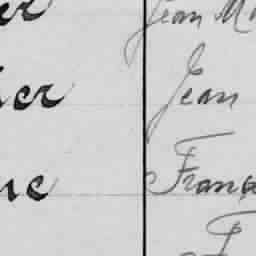 er Jean Ma
ier Jean
ne Franç